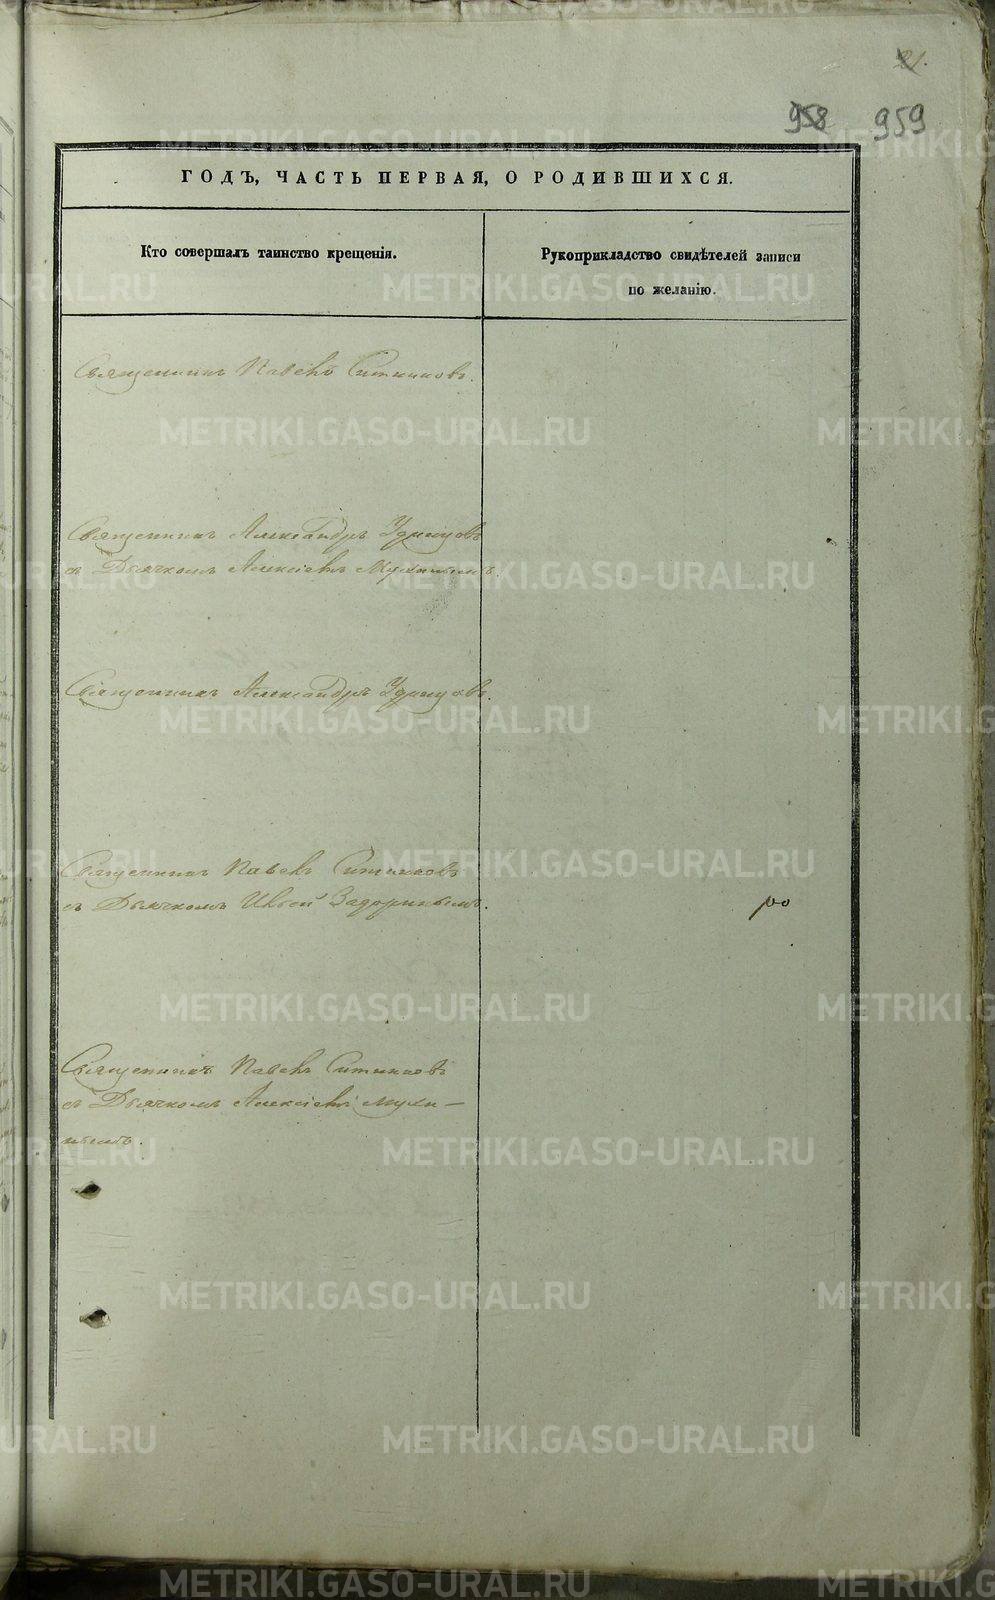 958 959
ГОДЪ, ЧАСТЬ ПЕРВАЯ, О РОДИВШИХСЯ.
Кто совершалъ таинство крещенія.
Рукоприкладство свидѣтелей записи
по желанію.
Священникъ Павелъ Ситниковъ.
Священникъ Александръ Удинцовъ
съ Дьячкомъ Алексіемъ Мухинымъ.
Священникъ Александръ Удинцовъ.
Священникъ Павелъ Ситниковъ
съ Дьячкомъ Задоринымъ.
Священникъ Павелъ Ситниковъ
съ Дьячкомъ Алексіемъ Мухи-
нымъ.
METRIKI.GASO-URAL.RU